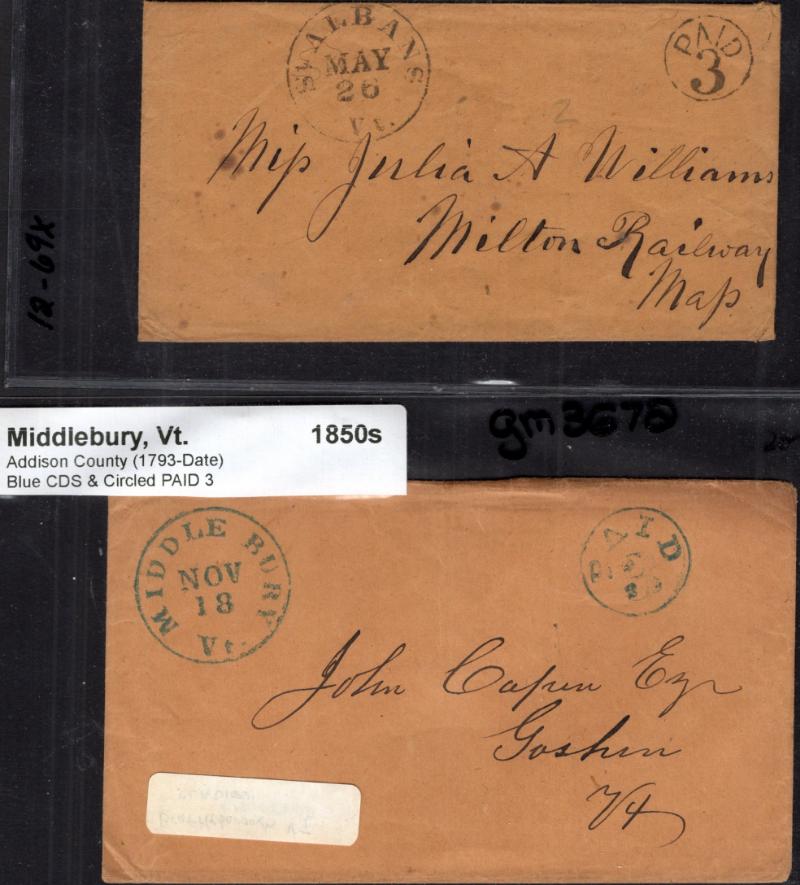 ST. ALBANS
MAY
26
Vt.
PAID
3
Miss Julia A Williams
Milton Railway
Mass
12-69x
Middlebury, Vt. 1850s
Addison County (1793-Date)
Blue CDS & Circled PAID 3
gm3678
MIDDLEBURY
NOV
18
Vt.
PAID
3
John Capen Esqr
Goshen
Vt